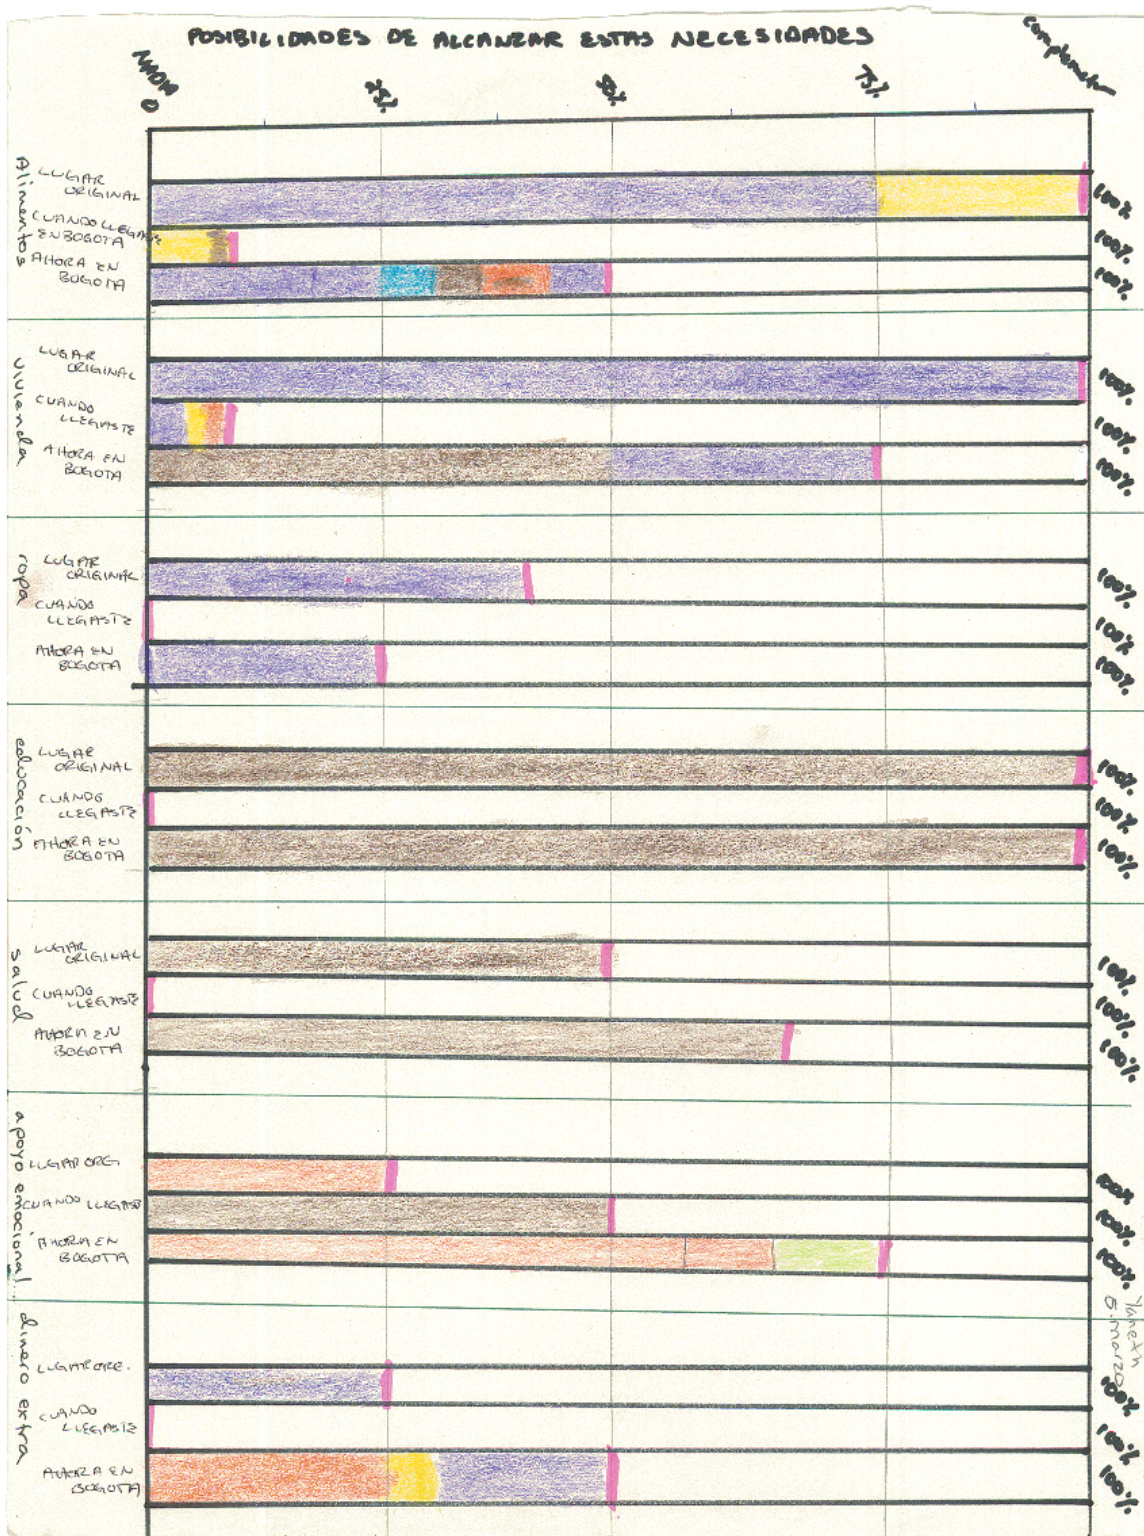 POSIBILIDADES DE ALCANZAR ESTAS NECESIDADES
NADA
0
25%
50%
75%
Alimentos
LUGAR
ORIGINAL
100%
CUANDO LLEGASTE
EN BOGOTA
100%
AHORA EN
BOGOTA
100%
vivienda
LUGAR
ORIGINAL
100%
CUANDO
LLEGASTE
100%
AHORA EN
BOGOTA
100%
ropa
LUGAR
ORIGINAL
100%
CUANDO
LLEGASTE
100%
AHORA EN
BOGOTA
100%
educación
LUGAR
ORIGINAL
100%
CUANDO
LLEGASTE
100%
AHORA EN
BOGOTA
100%
salud
LUGAR
ORIGINAL
100%
CUANDO
LLEGASTE
100%
AHORA EN
BOGOTA
100%
apoyo emocional...
LUGAR ORG
100%
CUANDO LLEGAST
100%
AHORA EN
BOGOTA
100%
Yaneth
5.marzo
dinero extra
LUGAR ORE.
100%
CUANDO
LLEGASTE
100%
AHORA EN
BOGOTA
100%